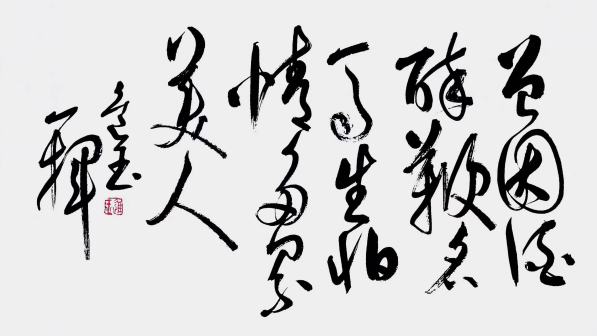 曾因酒
醉鞭名
马生怕
情多累
美人